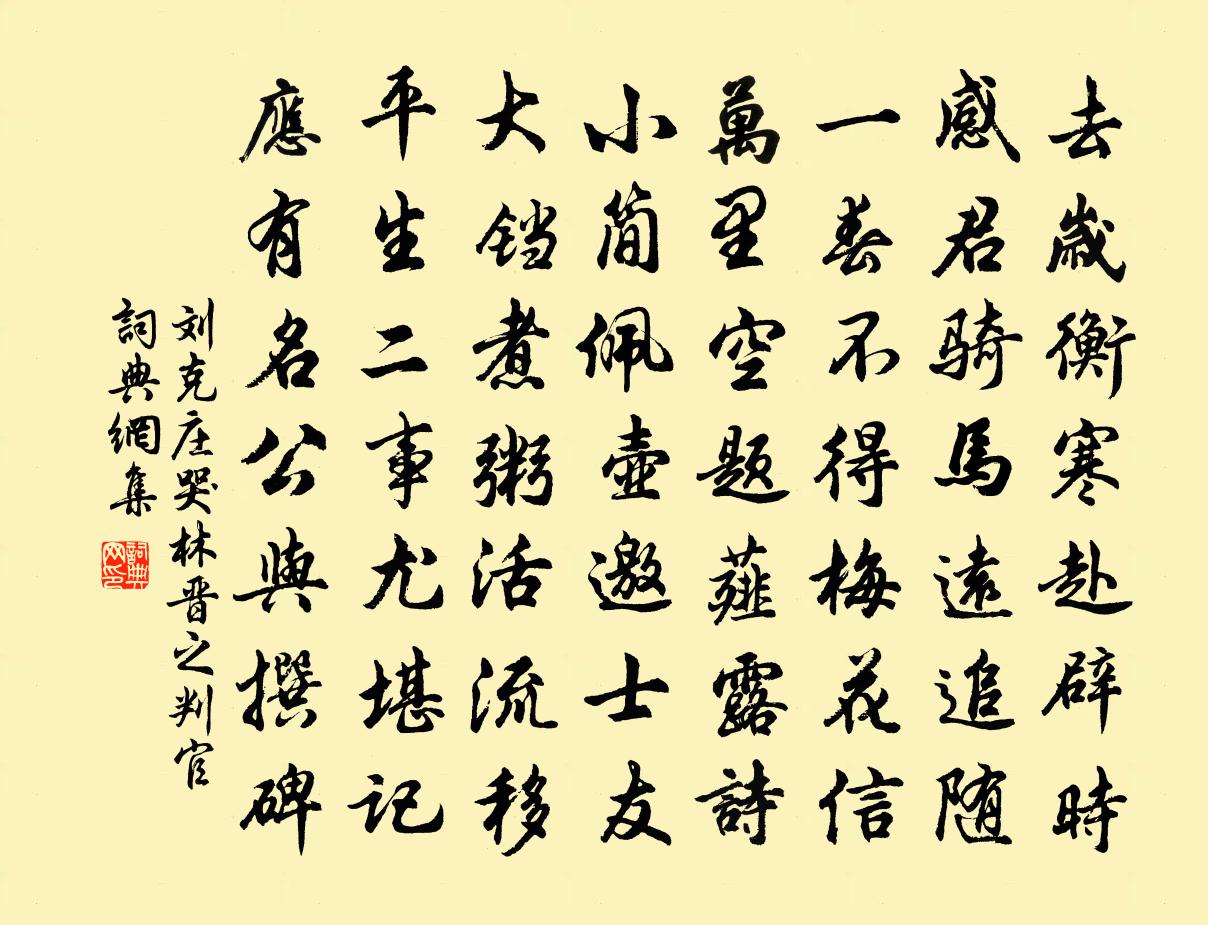 去歳衡寒赴辟時
感君骑馬遠追随
一春不得梅花信
萬里空题薤露詩
小简佩壺邀士友
大铛煮粥活流移
平生二事尤堪记
應有名公與撰碑
刘克庄哭林晋之判官
詞典網集
詞典网印